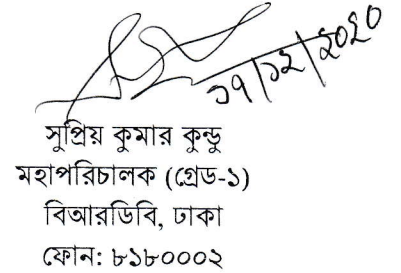 ১৭/১২/২০২০
সুপ্রিয় কুমার কুন্ডু
মহাপরিচালক (গ্রেড-১)
বিআরডিবি, ঢাকা
ফোন: ৮১৮০০০২